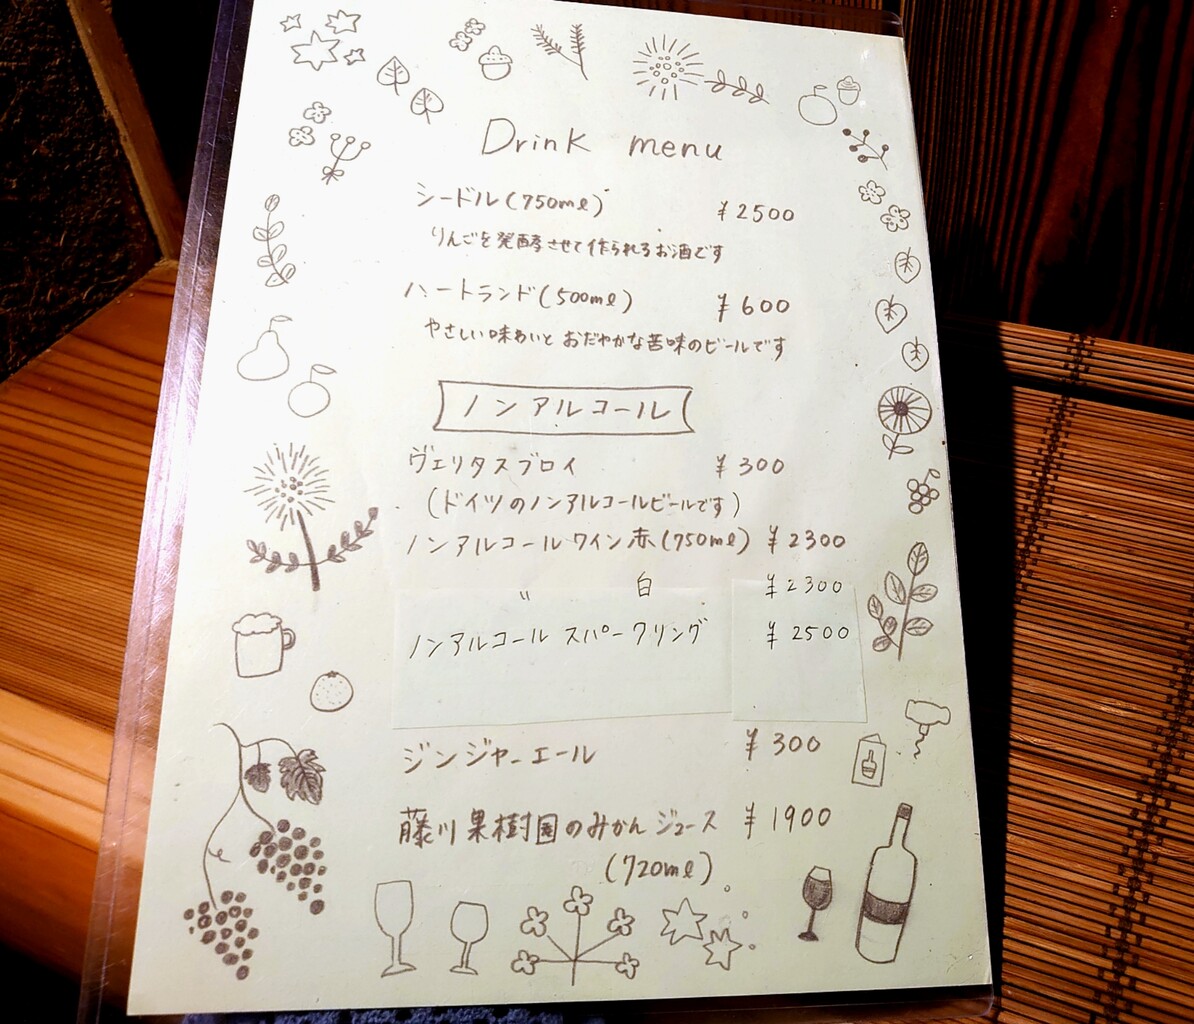 Drink menu
シードル(750ml) ¥2500
りんごを発酵させて作られるお酒です
ハートランド(500ml) ¥600
やさしい味わいと おだやかな苦味のビールです
ノンアルコール
ヴェリタスブロイ ¥300
(ドイツのノンアルコールビールです)
ノンアルコールワイン赤(750ml) ¥2300
〃 白 ¥2300
ノンアルコール スパークリング ¥2500
ジンジャーエール ¥300
藤川果樹園のみかんジュース ¥1900
(720ml)